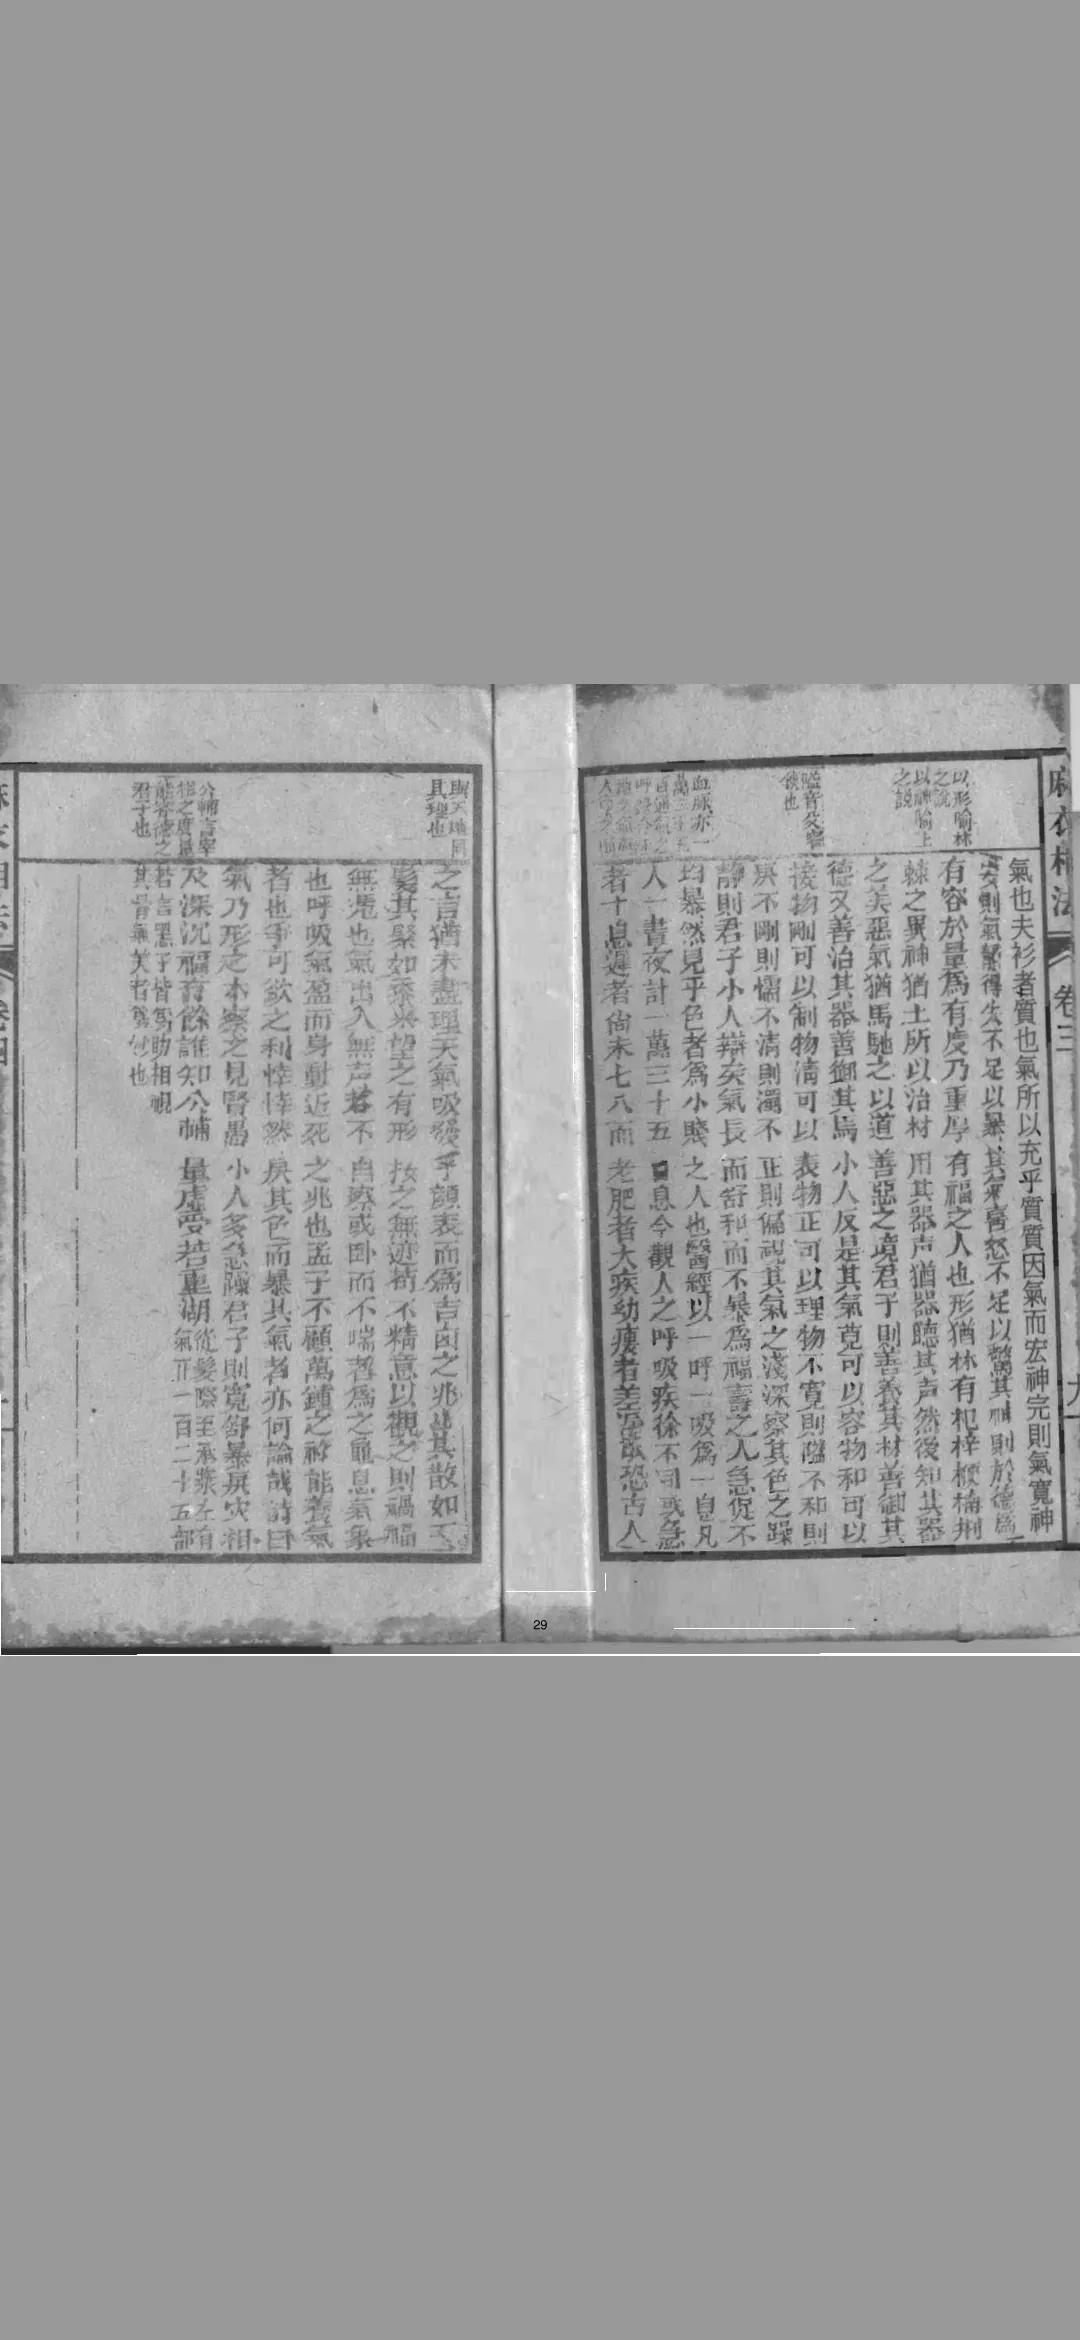 麻衣相法
卷三
九
以形喻林
之說
以神喻土
之說
氣也夫衫者質也氣所以充乎質質因氣而宏神完則氣寬神
安則氣靜得失不足以暴其氣喜怒不足以驚其神則於德爲
有容於量爲有度乃重厚有福之人也形猶林有杞梓楩楠荆
棘之異神猶土所以治材用其器声猶器聽其声然後知其器
之美惡氣猶馬馳之以道善惡之境君子則善養其材善御其
德又善治其器善御其馬小人反是其氣寬可以容物和可以
接物剛可以制物清可以表物正可以理物不寬則隘不和則
戾不剛則懦不清則濁不正則偏視其氣之淺深察其色之躁
靜則君子小人辯矣氣長而舒和而不暴爲福壽之人急促不
均暴然見乎色者爲小賤之人也醫經以一呼一吸爲一息凡
人一晝夜計一萬三千五百息今觀人之呼吸疾徐不同或急
者十息遲者尚未七八而老肥者大疾幼瘦者差遲故恐古人
與天地同
其理也
之言猶未盡理夫氣吸發乎顔表而爲吉凶之兆其散如毛
髮其聚如黍米望之有形按之無迹苟不精意以觀之則禍福
無凴也氣出入無声若不自察或卧而不喘者爲之龜息氣象
也呼吸氣盈而身動近死之兆也孟子不顧萬鍾之祿能養氣
者也爭可欲之利悻悻然戾其色而暴其氣者亦何論哉詩曰
氣乃形之本察之見賢愚小人多急躁君子則寬舒暴戾災相
及深沉福有餘誰知公輔量虛受若重湖
從髮際至承漿左右
氣正一百二十五部
若言黑子皆旁助相視
其骨氣美者爲
也
卷四
29